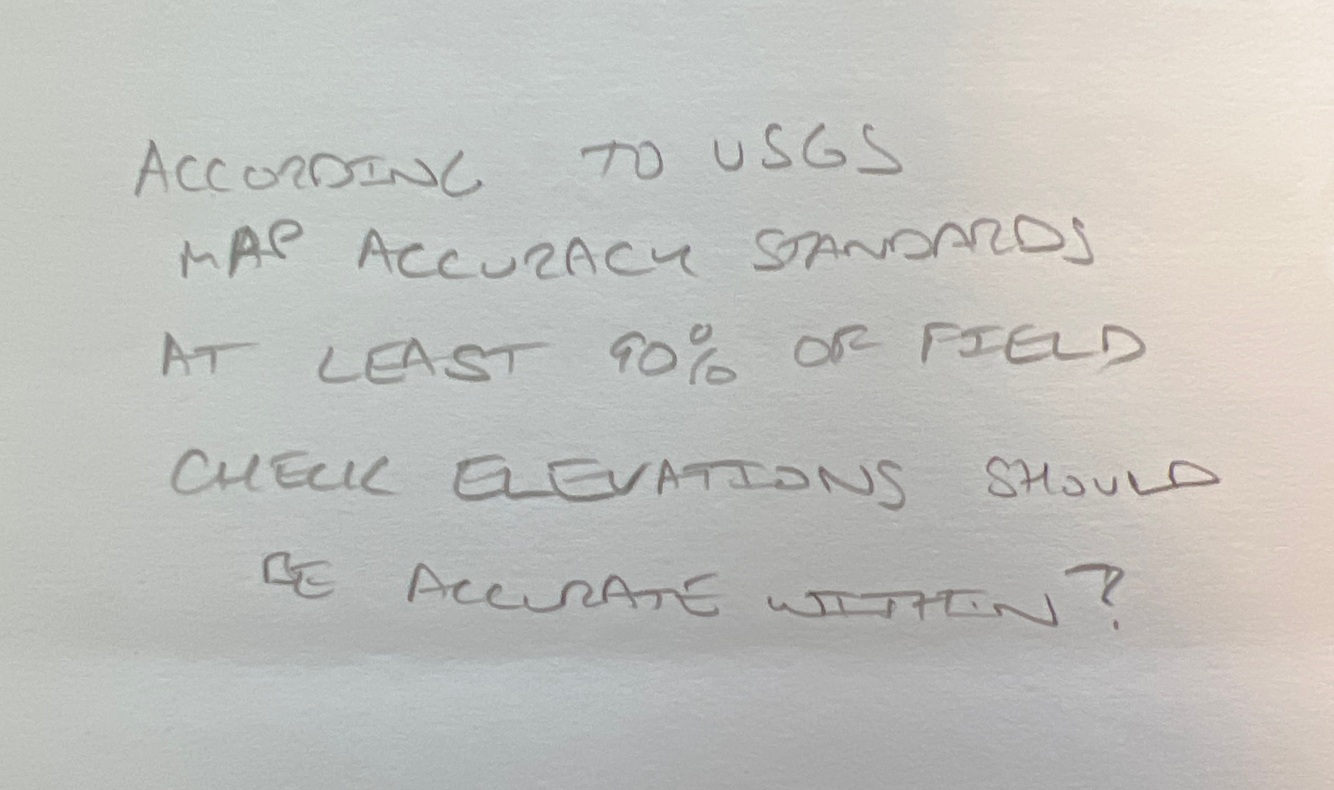 ACCORDING TO USGS
MAP ACCURACY STANDARDS
AT LEAST 90% OF FIELD
CHECK ELEVATIONS SHOULD
BE ACCURATE WITHIN?